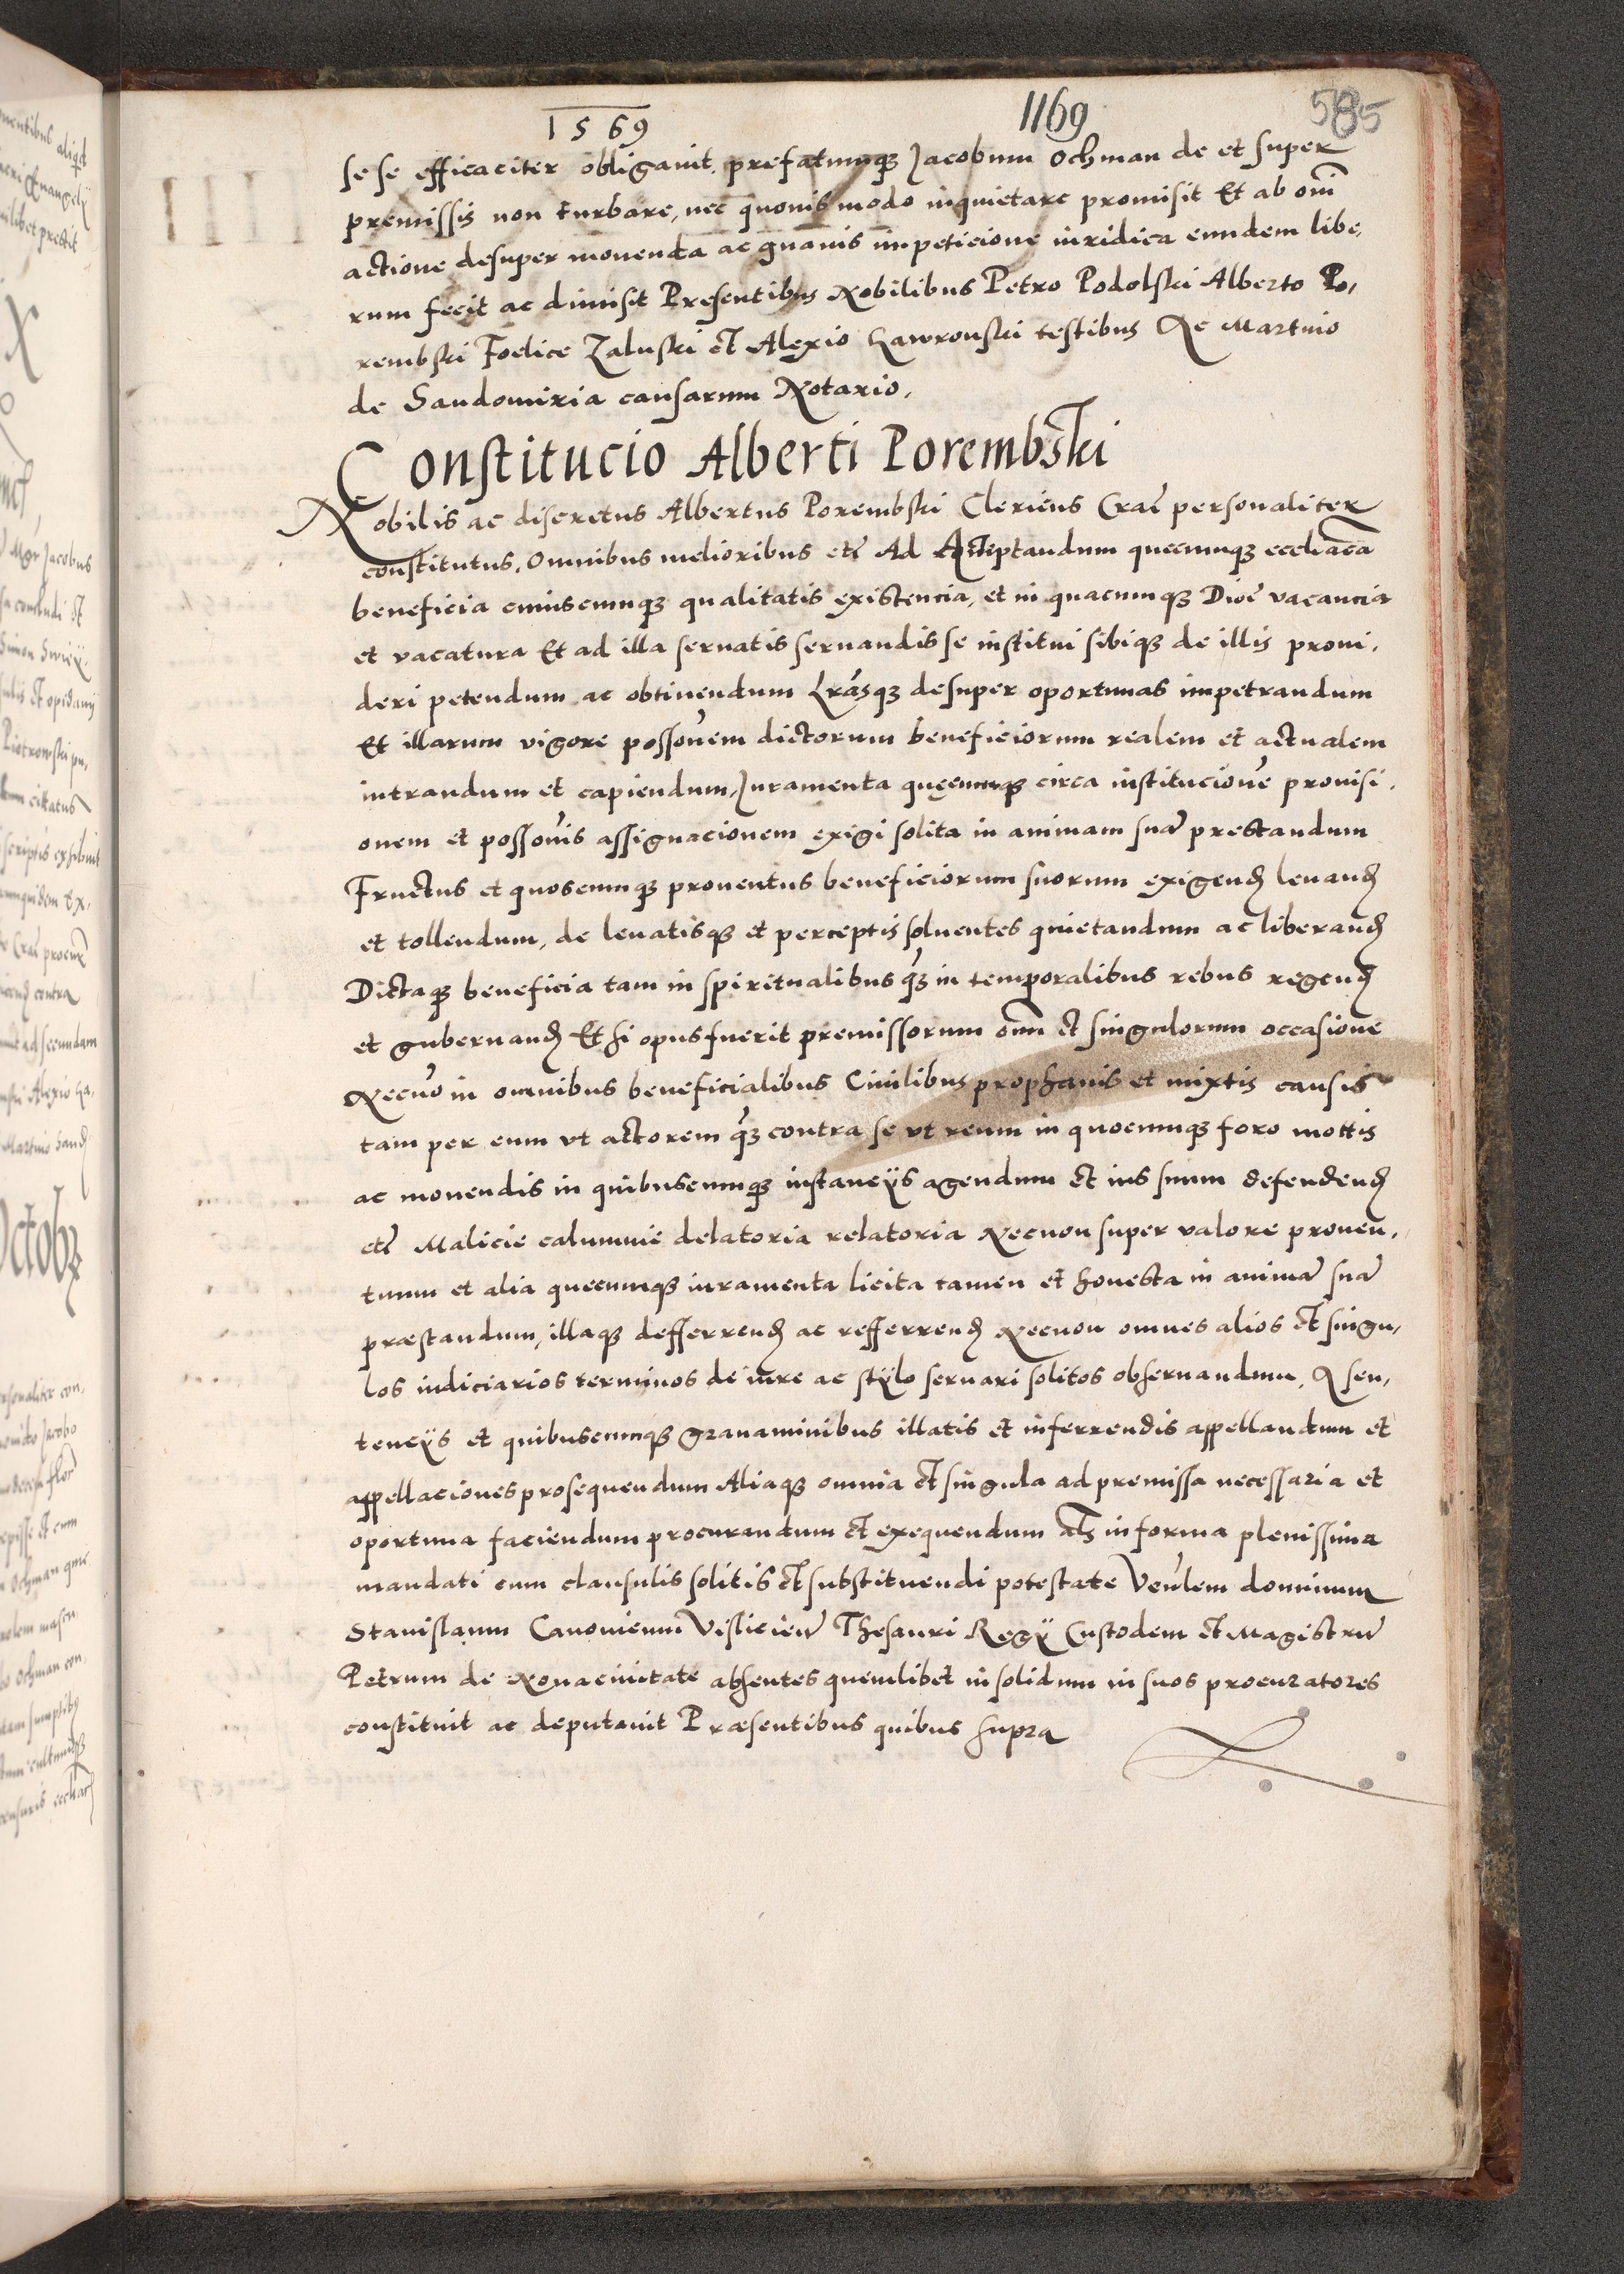 1569
1169
585
se se efficaciter obligauit. prefatumq3 Jacobum Ochman de et super
premissis non turbare, nec quouis modo inquietare promisit Et ab oĩ
actione desuper mouenda ac quauis impeticione iuridica eundem libe,
rum fecit ac dimisit Presentibus Nobilibus Petro Podolski Alberto Po,
rembski Foelice Zaluski et Alexio Hawronski testibus Ac Martino
de Sandomiria causarum Notario.
Constitucio Alberti Porembski
Nobilis ac discretus Albertus Porembski Clericus Craĉ personaliter
constitutus. Omnibus melioribus etc̃ Ad Acceptandum quecumq3 eccliãca
beneficia cuiuscumq3 qualitatis existencia, et in quacumq3 Dioĉ vacancia
et vacatura Et ad illa seruatis seruandis se institui sibiq3 de illis proui,
deri petendum ac obtinendum Lrãsq3 desuper oportunas impetrandum
Et illarum vigore possõnem dictorum beneficiorum realem et actualem
intrandum et capiendum, Juramenta quęcumq3 circa institucionẽ prouisi,
onem et possõnis assignacionem exigi solita in animam suã prestandum
Fructus et quoscumq3 prouentus beneficiorum suorum exigend leuand
et tollendum, de leuatisq3 et perceptis soluentes quietandum ac liberand
Dictaq3 beneficia tam in spiritualibus q̃3 in temporalibus rebus regend
et gubernand Et si opus fuerit premissorum oĩm et singulorum occasione
Necnõ in omnibus beneficialibus Ciuilibus prophanis et mixtis causis
tam per eum vt actorem q̃3 contra se vt reum in quocumq3 foro mottis
ac mouendis in quibuscumq3 instancÿs agendum et ius suum defendend
etc̃ Malicie calumnie delatoria relatoria Necnon super valore prouen,
tuum et alia quecumq3 iuramenta licita tamen et honesta in animã suã
præstandum, illaq3 defferrend ac refferrend Necnon omnes alios et singu,
los iudiciarios terminos de iure ac stÿlo seruari solitos obseruandum. A sen,
tencÿs et quibuscumq3 grauaminibus illatis et inferrendis appellandum et
appellaciones prosequendum Aliaq3 omnia et singula ad premissa necessaria et
oportuna faciendum procurandum et exequendum als in forma plenissima
mandati cum clausulis solitis et substituendi potestate Veñlem dominum
Stanislaum Canonicum Visliciem̃ Thesauri Regÿ Custodem et Magistrũ
Petrum de Nouaciuitate absentes quemlibet in solidum in suos procuratores
constituit ac deputauit Præsentibus quibus supra